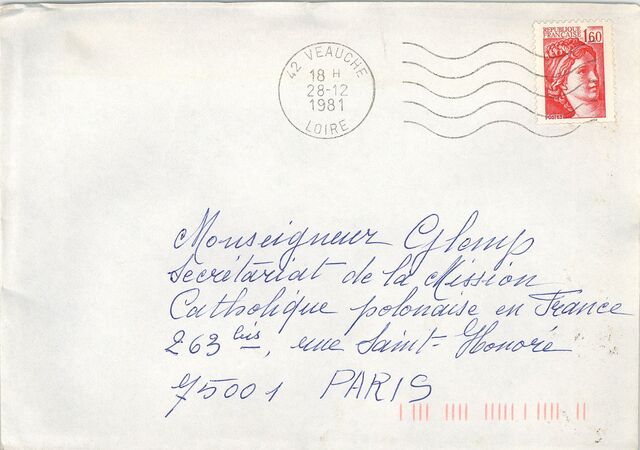 42 VEAUCHE
18 H
28-12
1981
LOIRE
REPUBLIQUE
FRANCAISE
1,60
POSTES
Monseigneur Glemp
Secrétariat de la Mission
Catholique polonaise en France
263 bis, rue Saint-Honoré
75001 PARIS